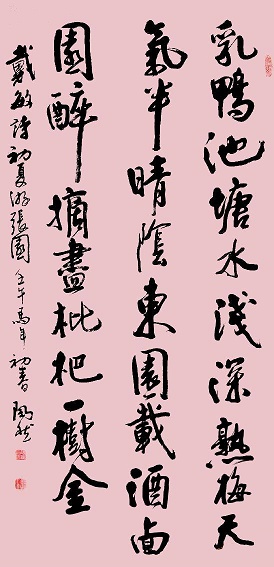 乳鴨池塘水淺深熟梅天
氣半晴陰東園載酒西
園醉摘盡枇杷一樹金
戴敏詩初夏游張園 壬午馬年初春